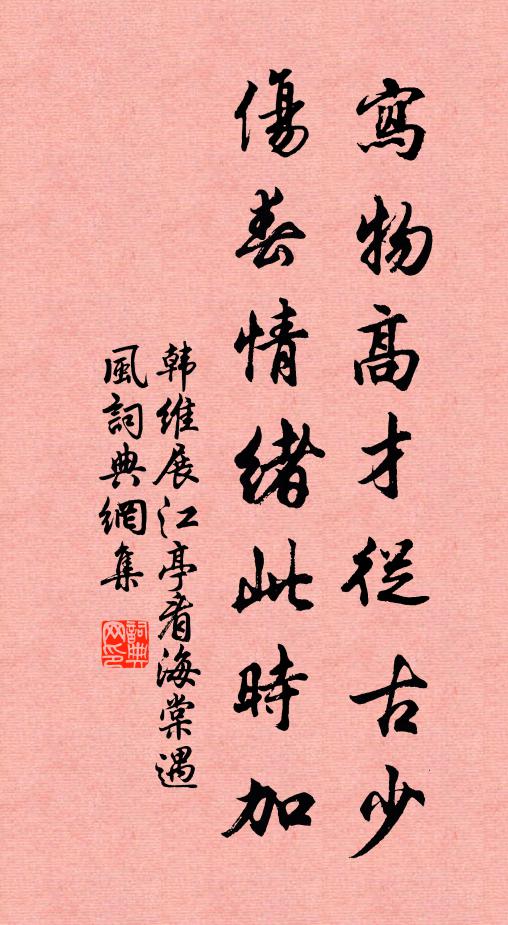 寫物高才從古少
傷春情緒此時加
韩維展江亭看海棠遇
風詞典網集
詞典网印